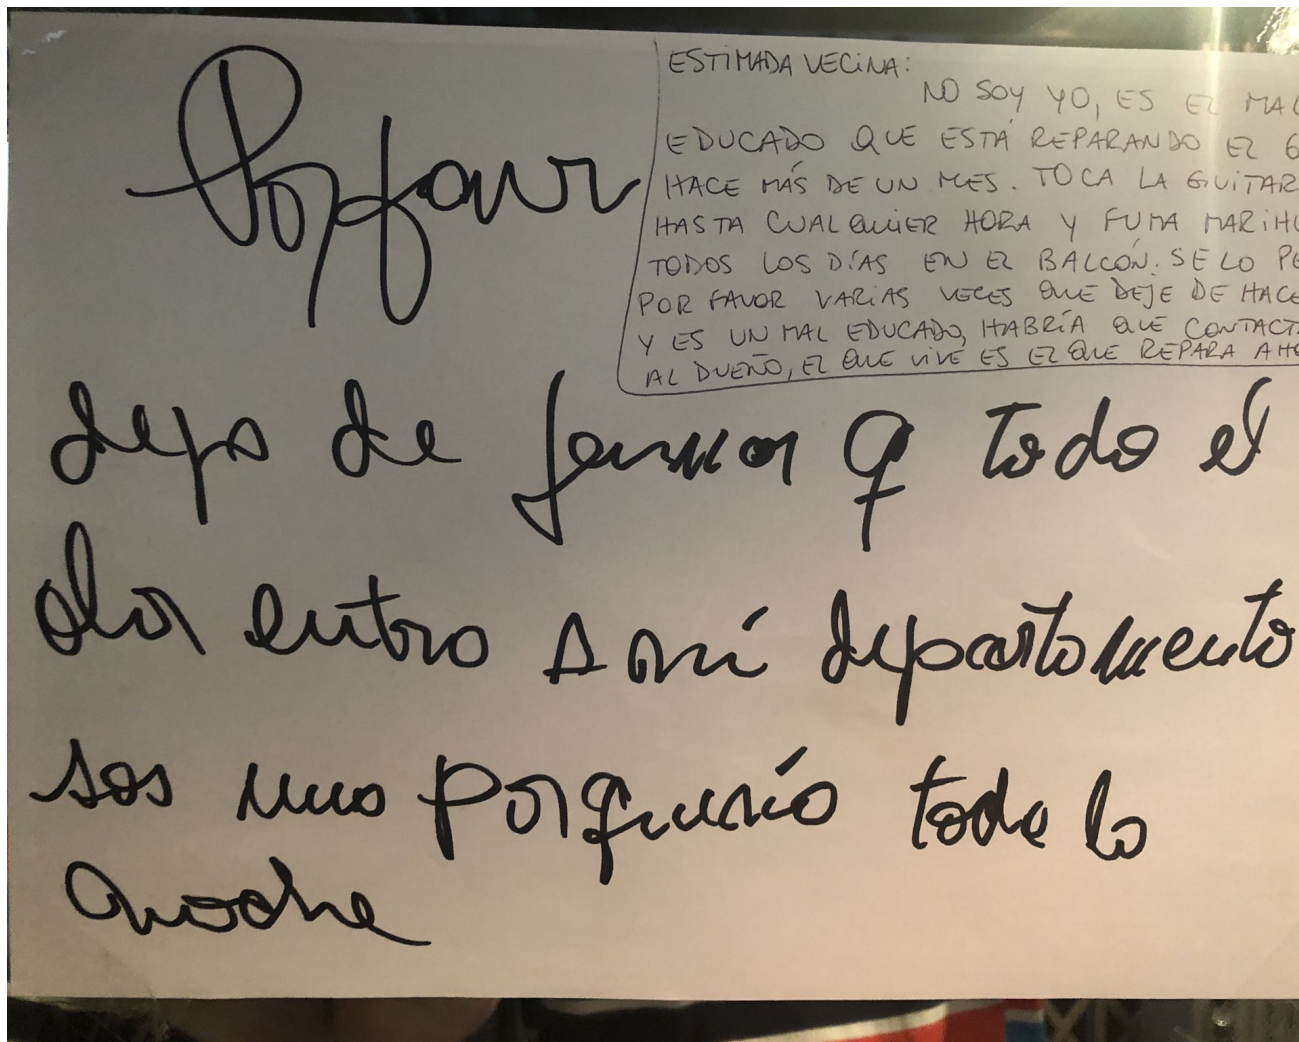 Por favor
ESTIMADA VECINA:
NO SOY YO, ES EL MAL
EDUCADO QUE ESTÁ REPARANDO EL 6
HACE MÁS DE UN MES. TOCA LA GUITAR
HASTA CUALQUIER HORA Y FUMA MARIHU
TODOS LOS DÍAS EN EL BALCÓN. SE LO PE
POR FAVOR VARIAS VECES QUE DEJE DE HACE
Y ES UN MAL EDUCADO, HABRÍA QUE CONTACT
AL DUEÑO, EL QUE VIVE ES EL QUE REPARA AHO
deja de fumar q todo el
olor entra a mí departamento
sos una porquería toda la
noche